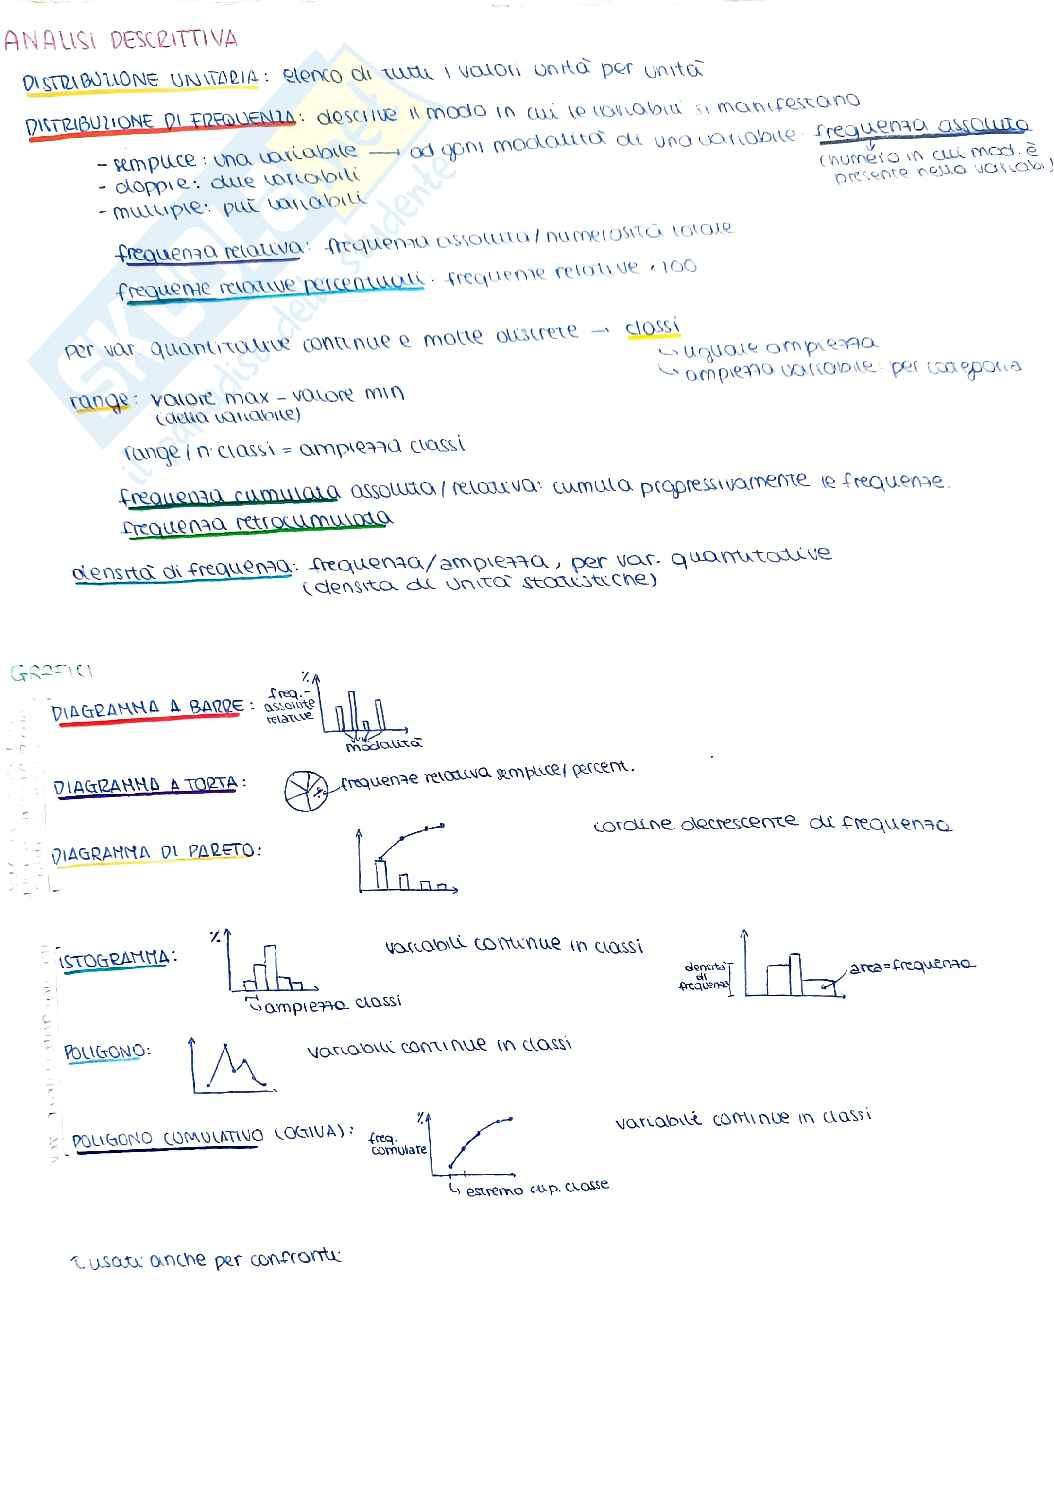 ANALISI DESCRITTIVA
DISTRIBUZIONE UNITARIA: elenco di tutti i valori unità per unità
DISTRIBUZIONE DI FREQUENZA: descrive il modo in cui le variabili si manifestano
- semplice: una variabile → ad ogni modalità di una variabile frequenza assoluta
(numero in cui mod. è
presente nella variabil
- doppie: due variabili
- multiple: più variabili
frequenza relativa: frequenza assoluta/numerosità totale
frequenze relative percentuali: frequenze relative · 100
per var. quantitative continue e molte discrete → classi
↳ uguale ampiezza
↳ ampiezza variabile per categoria
range: valore max - valore min
(della variabile)
range / n. classi = ampiezza classi
frequenza cumulata assoluta/relativa: cumula progressivamente le frequenze.
frequenza retrocumulata
densità di frequenza: frequenza/ampiezza, per var. quantitative
(densità di unità statistiche)
GRAFICI
DIAGRAMMA A BARRE:
%
freq.
assolute
relative
modalità
DIAGRAMMA A TORTA:
%
frequenze relativa semplice/percent.
DIAGRAMMA DI PARETO:
ordine decrescente di frequenza
ISTOGRAMMA:
%
ampiezza classi
variabili continue in classi
densità
di
frequenza
area=frequenza
POLIGONO:
variabili continue in classi
POLIGONO CUMULATIVO (OGIVA):
%
freq.
comulate
↳ estremo sup. classe
variabili continue in classi
usati anche per confronti
SKUOLA.net
il paradiso dello studente